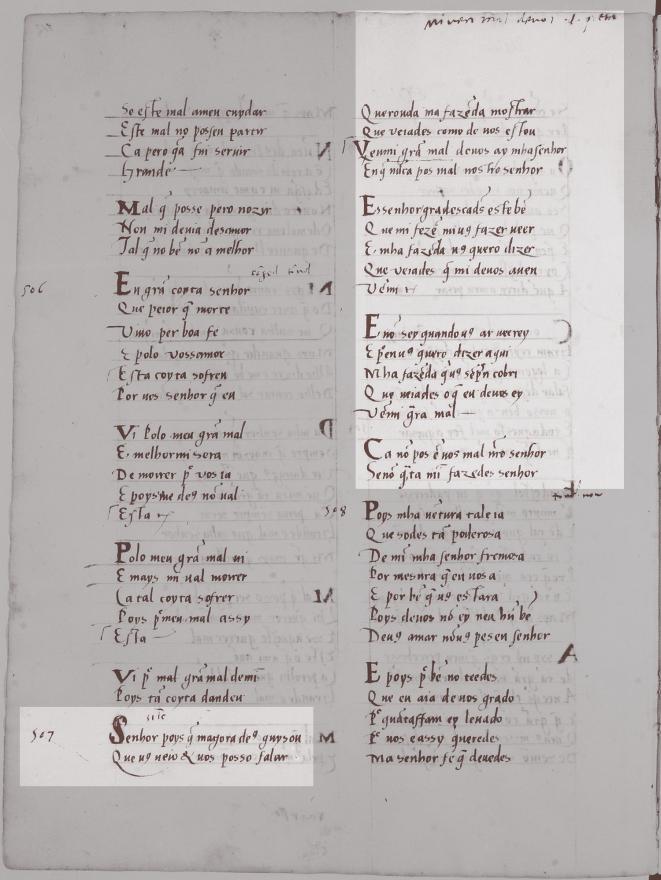 So este mal a meu cuydar
Este mal nō posseu partir
Ca pero q̄ a fui seruir
Grande
Mal q̄ posse pero nozir
Non mi deuia desamor
Tal q̄ no be nō a melhor
506
En grā coyta senhor
Que peior q̄ morte
Viuo per boa fe
E polo uossamor
Esta coyta sofreu
Por uos senhor q̄ eu
Vi Polo meu grā mal
E melhor mi sera
De moirer p̄ uos ia
E poys me deꝰ nō ual
Esta
Polo meu grā mal ui
E mays mi ual moirer
Ca tal coyta sofrer
Poys p̄ meu mal assy
Esta
Vi p̄ mal grā mal demi
Poys tā coyta dandeu
507
Senhor poys q̄ magora deꝰ guysou
Que uꝰ ueio & uos posso falar
Querouda mha fazēda mostrar
Que ueiades como de uos estou
Vēmi grā mal deuos ay mhasenhor
En q̄ nūca pos mal nostro senhor
E ssenhor gradescads este bē
Que mi fezē miuꝰ fazer ueer
E mha fazēda uꝰ quero dizer
Que ueiades q̄ mi deuos auen
Vēm
E nō sey quando uꝰ ar ueerey
E pēn uꝰ quero dizer aqui
Mha fazēda q̄ uꝰ
Que ueiades o q̄ eu deuos ey
Vēmi grā mal
Ca nō pos ē uos mal nr̄o senhor
Senō q̄ta mī fazedes senhor
508
Poys mha uētura tal e ia
Que sodes tā poderosa
De mī mha senhor fremosa
Por mesura q̄ eu uos a
E por bē q̄ uꝰ estara
Poys deuos nō ey neu hū bē
Deuꝰ amar nōuꝰ pes en senhor
E poys p̄ bē no teedes
Que eu aia de uos grado
P̄ quātaffam ey leuado
P̄ uos e assy queredes
Ma senhor fe q̄ deuedes